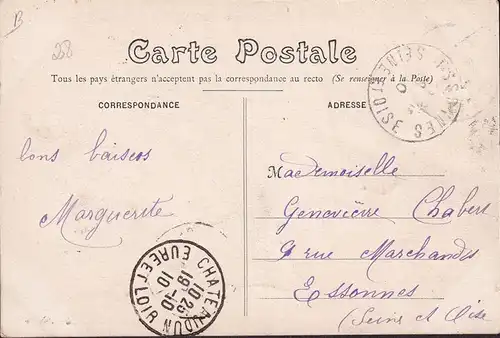 B
28
Carte Postale
Tous les pays étrangers n'acceptent pas la correspondance au recto (Se renseigner à la Poste)
CORRESPONDANCE
ADRESSE
bons baisers
Marguerite
Mademoiselle
Geneviève Chabert
9 rue Marchands
Essonnes
(Seine et Oise
CHATEAUDUN
10 25
19-10
10
EURE ET LOIR
SEINE ET OISE